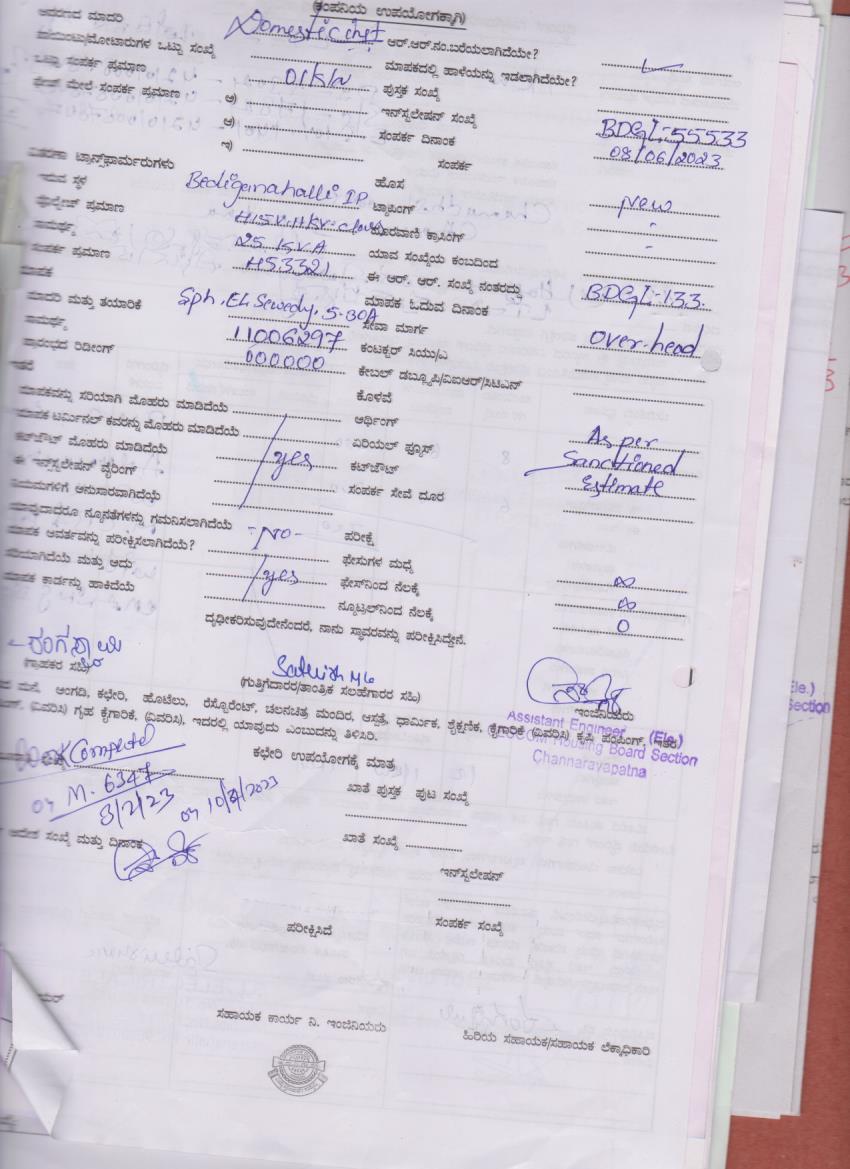 (ಕಂಪನಿಯ ಉಪಯೋಗಕ್ಕಾಗಿ)
ಆವರಣದ ಮಾದರಿ Domestic ಆರ್.ಆರ್.ನಂ.ಬರೆಯಲಾಗಿದೆಯೇ?
ಒಟ್ಟು ಸಂಖ್ಯೆ ಮಾಪಕದಲ್ಲಿ ಹಾಳೆಯನ್ನು ಇಡಲಾಗಿದೆಯೇ?
ಒಟ್ಟಾ ಸಂಪರ್ಕ ಪ್ರಮಾಣ 01KW ಪುಸ್ತಕ ಸಂಖ್ಯೆ
ಮೇಲೆ ಸಂಪರ್ಕ ಪ್ರಮಾಣ ಇನ್‌ಸ್ಟಲೇಷನ್ ಸಂಖ್ಯೆ BDGL-55533
ಸಂಪರ್ಕ ದಿನಾಂಕ 08/06/2023
ಇ) ಸಂಪರ್ಕ
ವಿತರಣಾ ಟ್ರಾನ್ಸ್‌ಫಾರ್ಮರುಗಳು ಹೊಸ New
ಇರುವ ಸ್ಥಳ Bediganahalli IP ಟ್ಯಾಪಿಂಗ್ -
ವೋಲ್ಟೇಜ್ ಪ್ರಮಾಣ ಕ್ರಾಸಿಂಗ್ -
ಸಾಮರ್ಥ್ಯ 25 KVA ಯಾವ ಸಂಖ್ಯೆಯ ಕಂಬದಿಂದ
ಸಂಪರ್ಕ ಪ್ರಮಾಣ H53321 ಈ ಆರ್. ಆರ್. ಸಂಖ್ಯೆ ನಂತರದ್ದು BDGL-133.
ಮಾಪಕ ಮಾಪಕ ಓದುವ ದಿನಾಂಕ
ಮಾದರಿ ಮತ್ತು ತಯಾರಿಕೆ Sph. EL Sewedy, 5-30A ಸೇವಾ ಮಾರ್ಗ Over-head
ಸಾಮರ್ಥ್ಯ 11006297 ಕಂಟಕ್ಟರ್ ಸಿಯು/ಎ
ಪ್ರಾರಂಭದ ರಿಡಿಂಗ್ 000000 ಕೇಬಲ್ ಡಬ್ಲೂಪಿ/ಎಐಆರ್/ಸಿಟಿಎನ್
ಇತರೆ ಕೊಳವೆ
ಮಾಪಕವನ್ನು ಸರಿಯಾಗಿ ಮೊಹರು ಮಾಡಿದೆಯೆ ಅರ್ಥಿಂಗ್
ಮಾಪಕ ಟರ್ಮಿನಲ್ ಕವರನ್ನು ಮೊಹರು ಮಾಡಿದೆಯೆ ಏರಿಯಲ್ ಫ್ಯೂಸ್ As per
ಕಟ್‌ಔಟ್ ಮೊಹರು ಮಾಡಿದೆಯೆ yes ಕಟ್‌ಔಟ್ Sanctioned
ಈ ಇನ್‌ಸ್ಟಲೇಷನ್ ವೈರಿಂಗ್ ಸಂಪರ್ಕ ಸೇವೆ ದೂರ Estimate
ನಿಯಮಗಳಿಗೆ ಅನುಸಾರವಾಗಿದೆಯೆ
ಯಾವುದಾದರೂ ನ್ಯೂನತೆಗಳನ್ನು ಗಮನಿಸಲಾಗಿದೆಯೆ -No- ಪರೀಕ್ಷೆ
ಮಾಪಕ ಆವರ್ತವನ್ನು ಪರಿಕ್ಷಿಸಲಾಗಿದೆಯೆ? ಫೇಸುಗಳ ಮಧ್ಯೆ ∞
ಸರಿಯಾಗಿದೆಯೆ ಮತ್ತು ಅದು yes ಫೇಸ್‌ನಿಂದ ನೆಲಕ್ಕೆ ∞
ಮಾಪಕ ಕಾರ್ಡನ್ನು ಹಾಕಿದೆಯೆ ನ್ಯೂಟ್ರಲ್‌ನಿಂದ ನೆಲಕ್ಕೆ 0
ದೃಢೀಕರಿಸುವುದೇನೆಂದರೆ, ನಾನು ಸ್ಥಾವರವನ್ನು ಪರೀಕ್ಷಿಸಿದ್ದೇನೆ.
ರಂಗಸ್ವಾಮಿ Sathish MG
(ಗ್ರಾಹಕರ ಸಹಿ) (ಗುತ್ತಿಗೆದಾರರ/ತಾಂತ್ರಿಕ ಸಲಹೆಗಾರರ ಸಹಿ) ಇಂಜಿನಿಯರು
ಮನೆ, ಅಂಗಡಿ, ಕಛೇರಿ, ಹೊಟೆಲು, ರೆಸ್ಟೋರೆಂಟ್, ಚಲನಚಿತ್ರ ಮಂದಿರ, ಆಸ್ಪತ್ರೆ, ಧಾರ್ಮಿಕ, ಶೈಕ್ಷಣಿಕ, ಕೈಗಾರಿಕೆ (ವಿವರಿಸಿ) ಕೃಷಿ ಪಂಪಿಂಗ್, ಇತರೆ
(ವಿವರಿಸಿ) ಗೃಹ ಕೈಗಾರಿಕೆ, (ವಿವರಿಸಿ), ಇದರಲ್ಲಿ ಯಾವುದು ಎಂಬುದನ್ನು ತಿಳಿಸಿರಿ.
Assistant Engineer (Ele.)
Housing Board Section
Channarayapatna
Ele.)
Section
Completed
ಕಛೇರಿ ಉಪಯೋಗಕ್ಕೆ ಮಾತ್ರ
M. 6347
ಖಾತೆ ಪುಸ್ತಕ ಪುಟ ಸಂಖ್ಯೆ
ಆದೇಶ ಸಂಖ್ಯೆ ಮತ್ತು ದಿನಾಂಕ ಖಾತೆ ಸಂಖ್ಯೆ
ಇನ್‌ಸ್ಟಲೇಷನ್
ಪರೀಕ್ಷಿಸಿದೆ ಸಂಪರ್ಕ ಸಂಖ್ಯೆ
ಸಹಾಯಕ ಕಾರ್ಯ ನಿ. ಇಂಜಿನಿಯರು ಹಿರಿಯ ಸಹಾಯಕ/ಸಹಾಯಕ ಲೆಕ್ಕಾಧಿಕಾರಿ